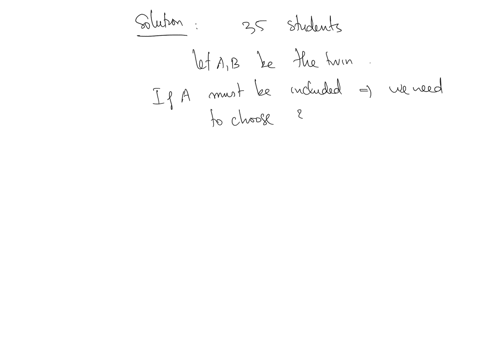 Solution : 35 students
let A,B be the twin .
If A must be included ⇒ we need
to choose 2